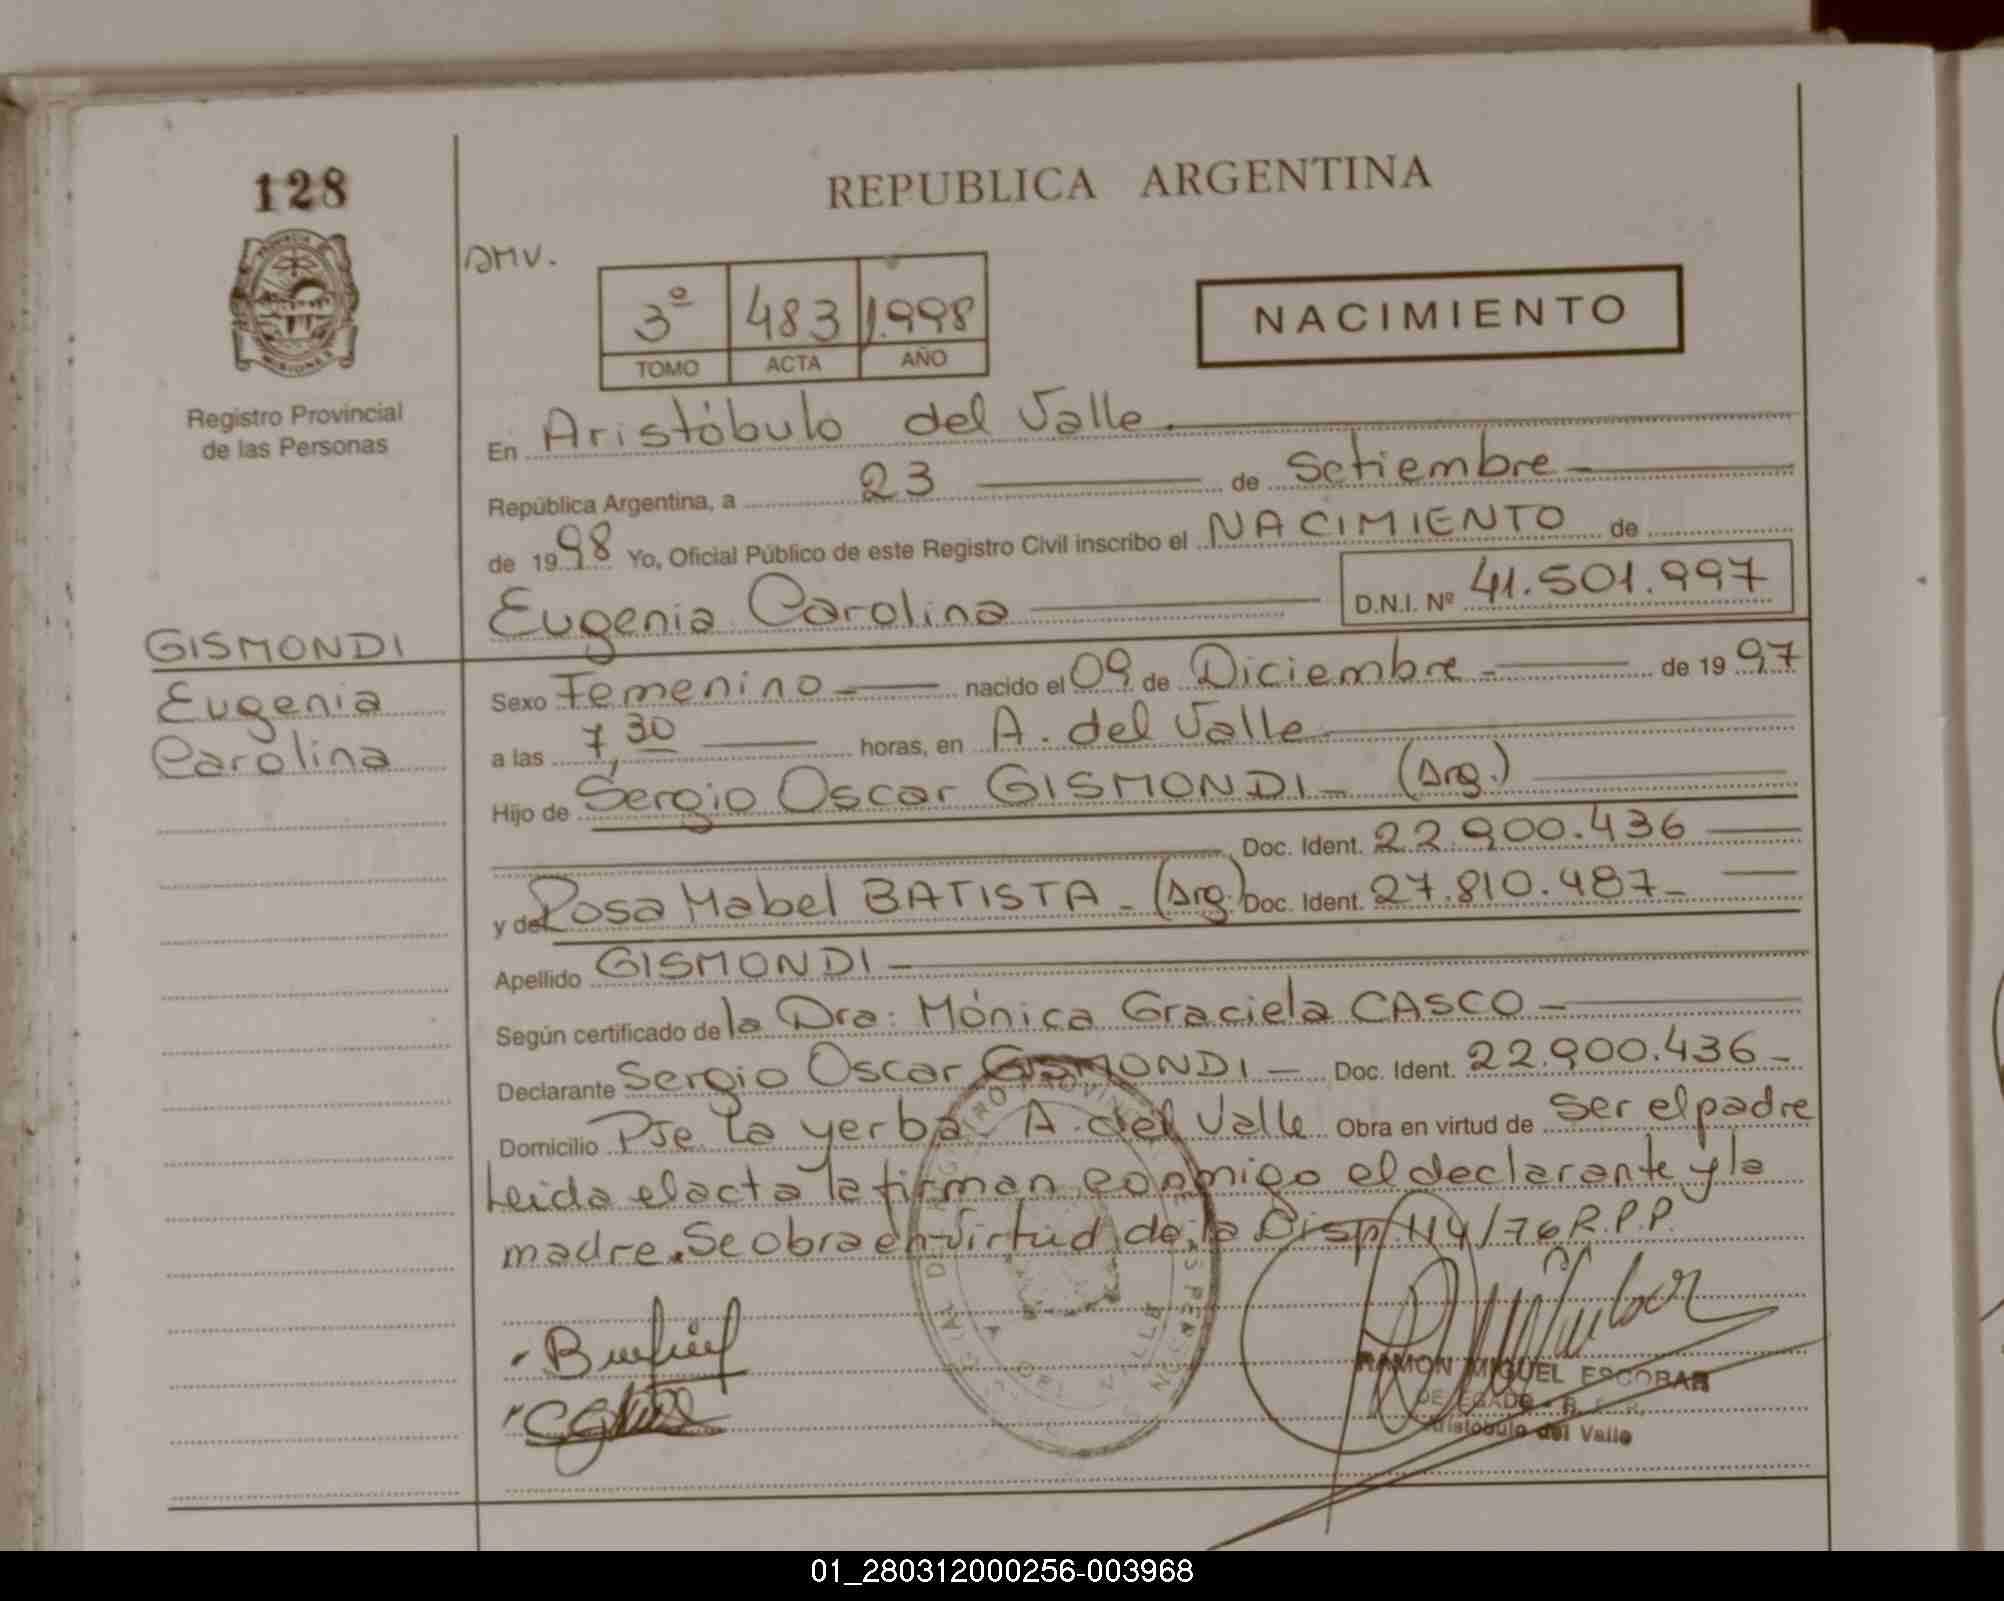 128
REPUBLICA ARGENTINA
DMV.
3º 483 1.998
TOMO ACTA AÑO
NACIMIENTO
MISIONES
Registro Provincial
de las Personas
En Aristóbulo del Valle.
República Argentina, a 23 de Setiembre
de 1998 Yo, Oficial Público de este Registro Civil inscribo el NACIMIENTO de
Eugenia Carolina D.N.I. Nº 41.501.997
GISMONDI
Eugenia
Carolina
Sexo Femenino nacido el 09 de Diciembre de 1997
a las 7,30 horas, en A. del Valle
Hijo de Sergio Oscar GISMONDI (Arg.)
Doc. Ident. 22.900.436
y de Rosa Mabel BATISTA - (Arg.) Doc. Ident. 27.810.487
Apellido GISMONDI
Según certificado de la Dra: Mónica Graciela CASCO
Declarante Sergio Oscar GISMONDI Doc. Ident. 22.900.436
Domicilio Pje. La yerba A. del Valle Obra en virtud de ser el padre
Leida el acta la firman conmigo el declarante y la
madre. Se obra en virtud de la Disp. 114/76 R.P.P.
RAMON MIGUEL ESCOBAR
DELEGADO
Aristobulo del Valle
01_280312000256-003968